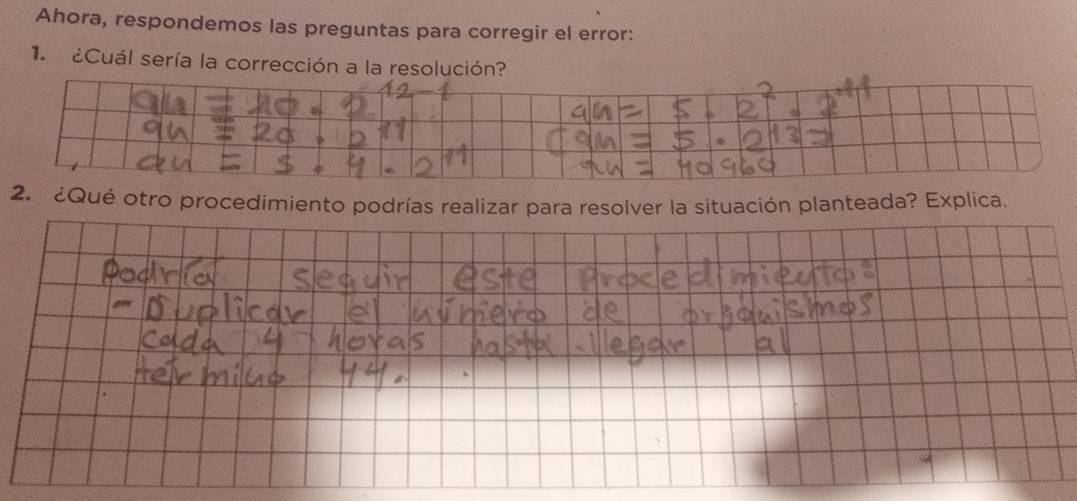 Ahora, respondemos las preguntas para corregir el error:
1. ¿Cuál sería la corrección a la resolución?
an = 20 . 2^12-1
an = 20 . 2^11
an = 5 . 4 . 2^11
an = 5 . 2^2 . 2^11
an = 5 . 2^13 =
an = 40960
2. ¿Qué otro procedimiento podrías realizar para resolver la situación planteada? Explica.
Podría seguir este procedimiento:
- Duplicar el número de organismos
cada 4 horas hasta llegar al
termino 44.